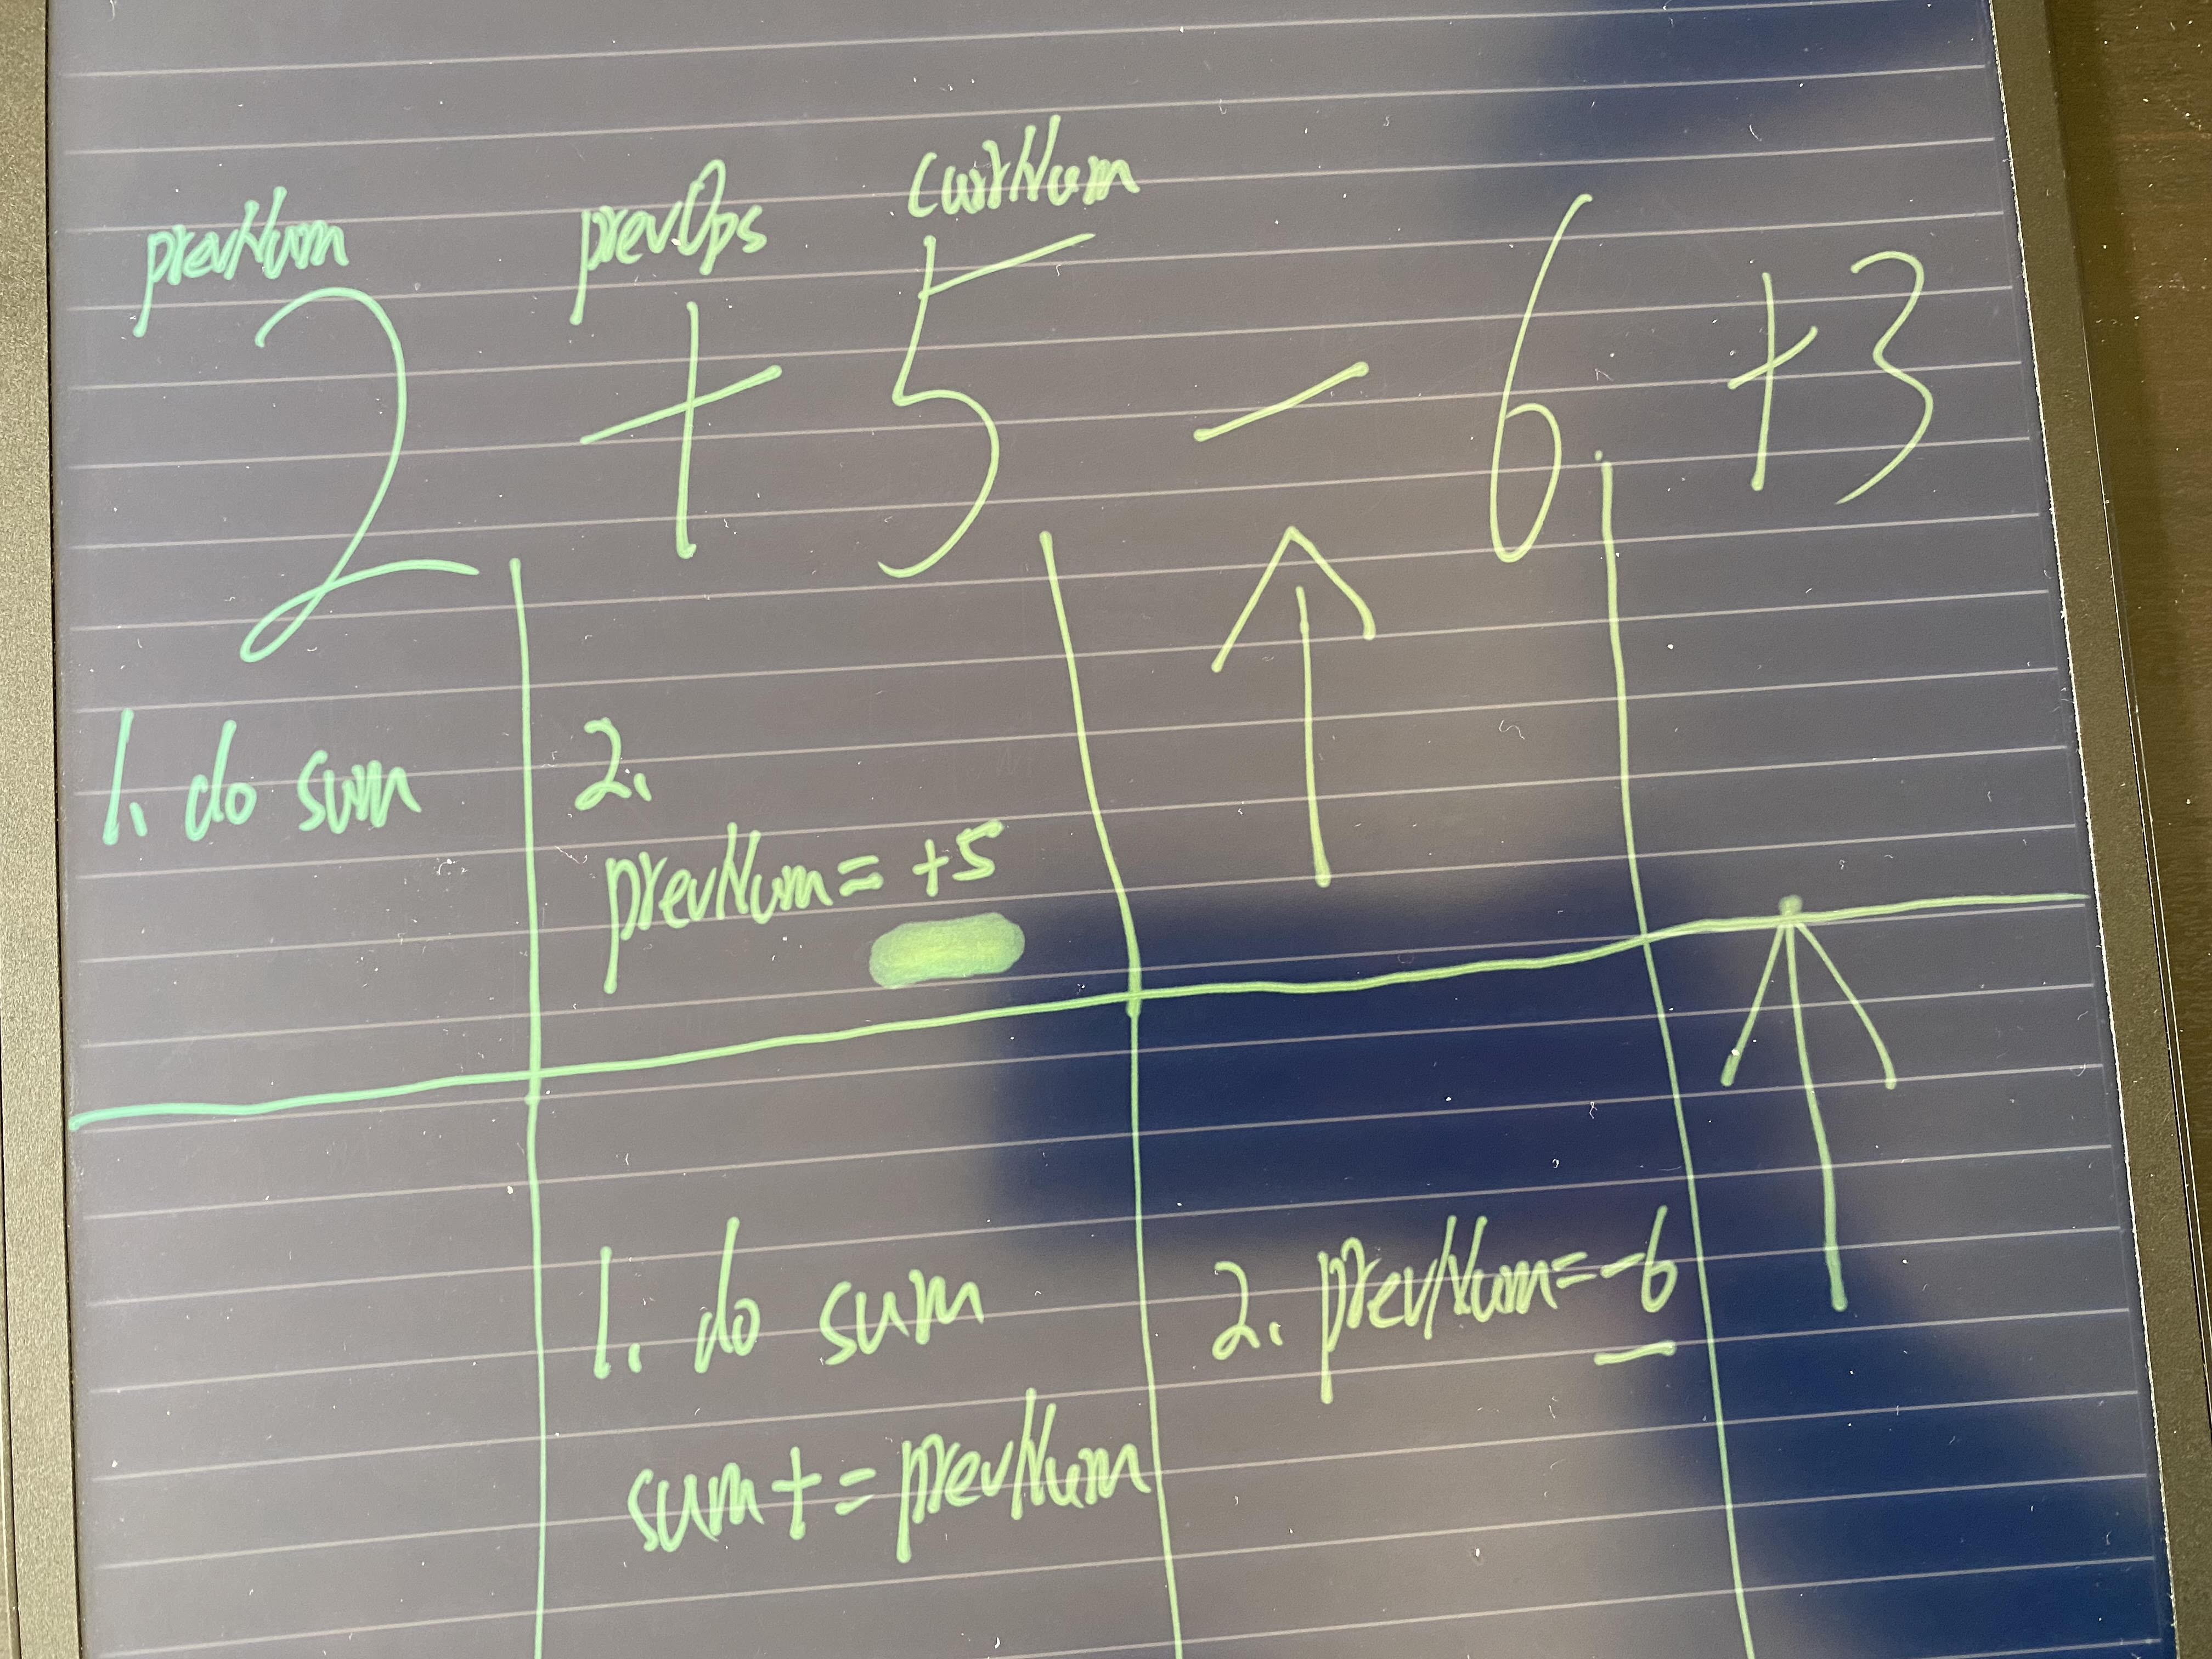 prevNum prevOps currNum
2 + 5 - 6 + 3
1. do sum
2.
prevNum = +5
1. do sum
sum += prevNum
2. prevNum = -6